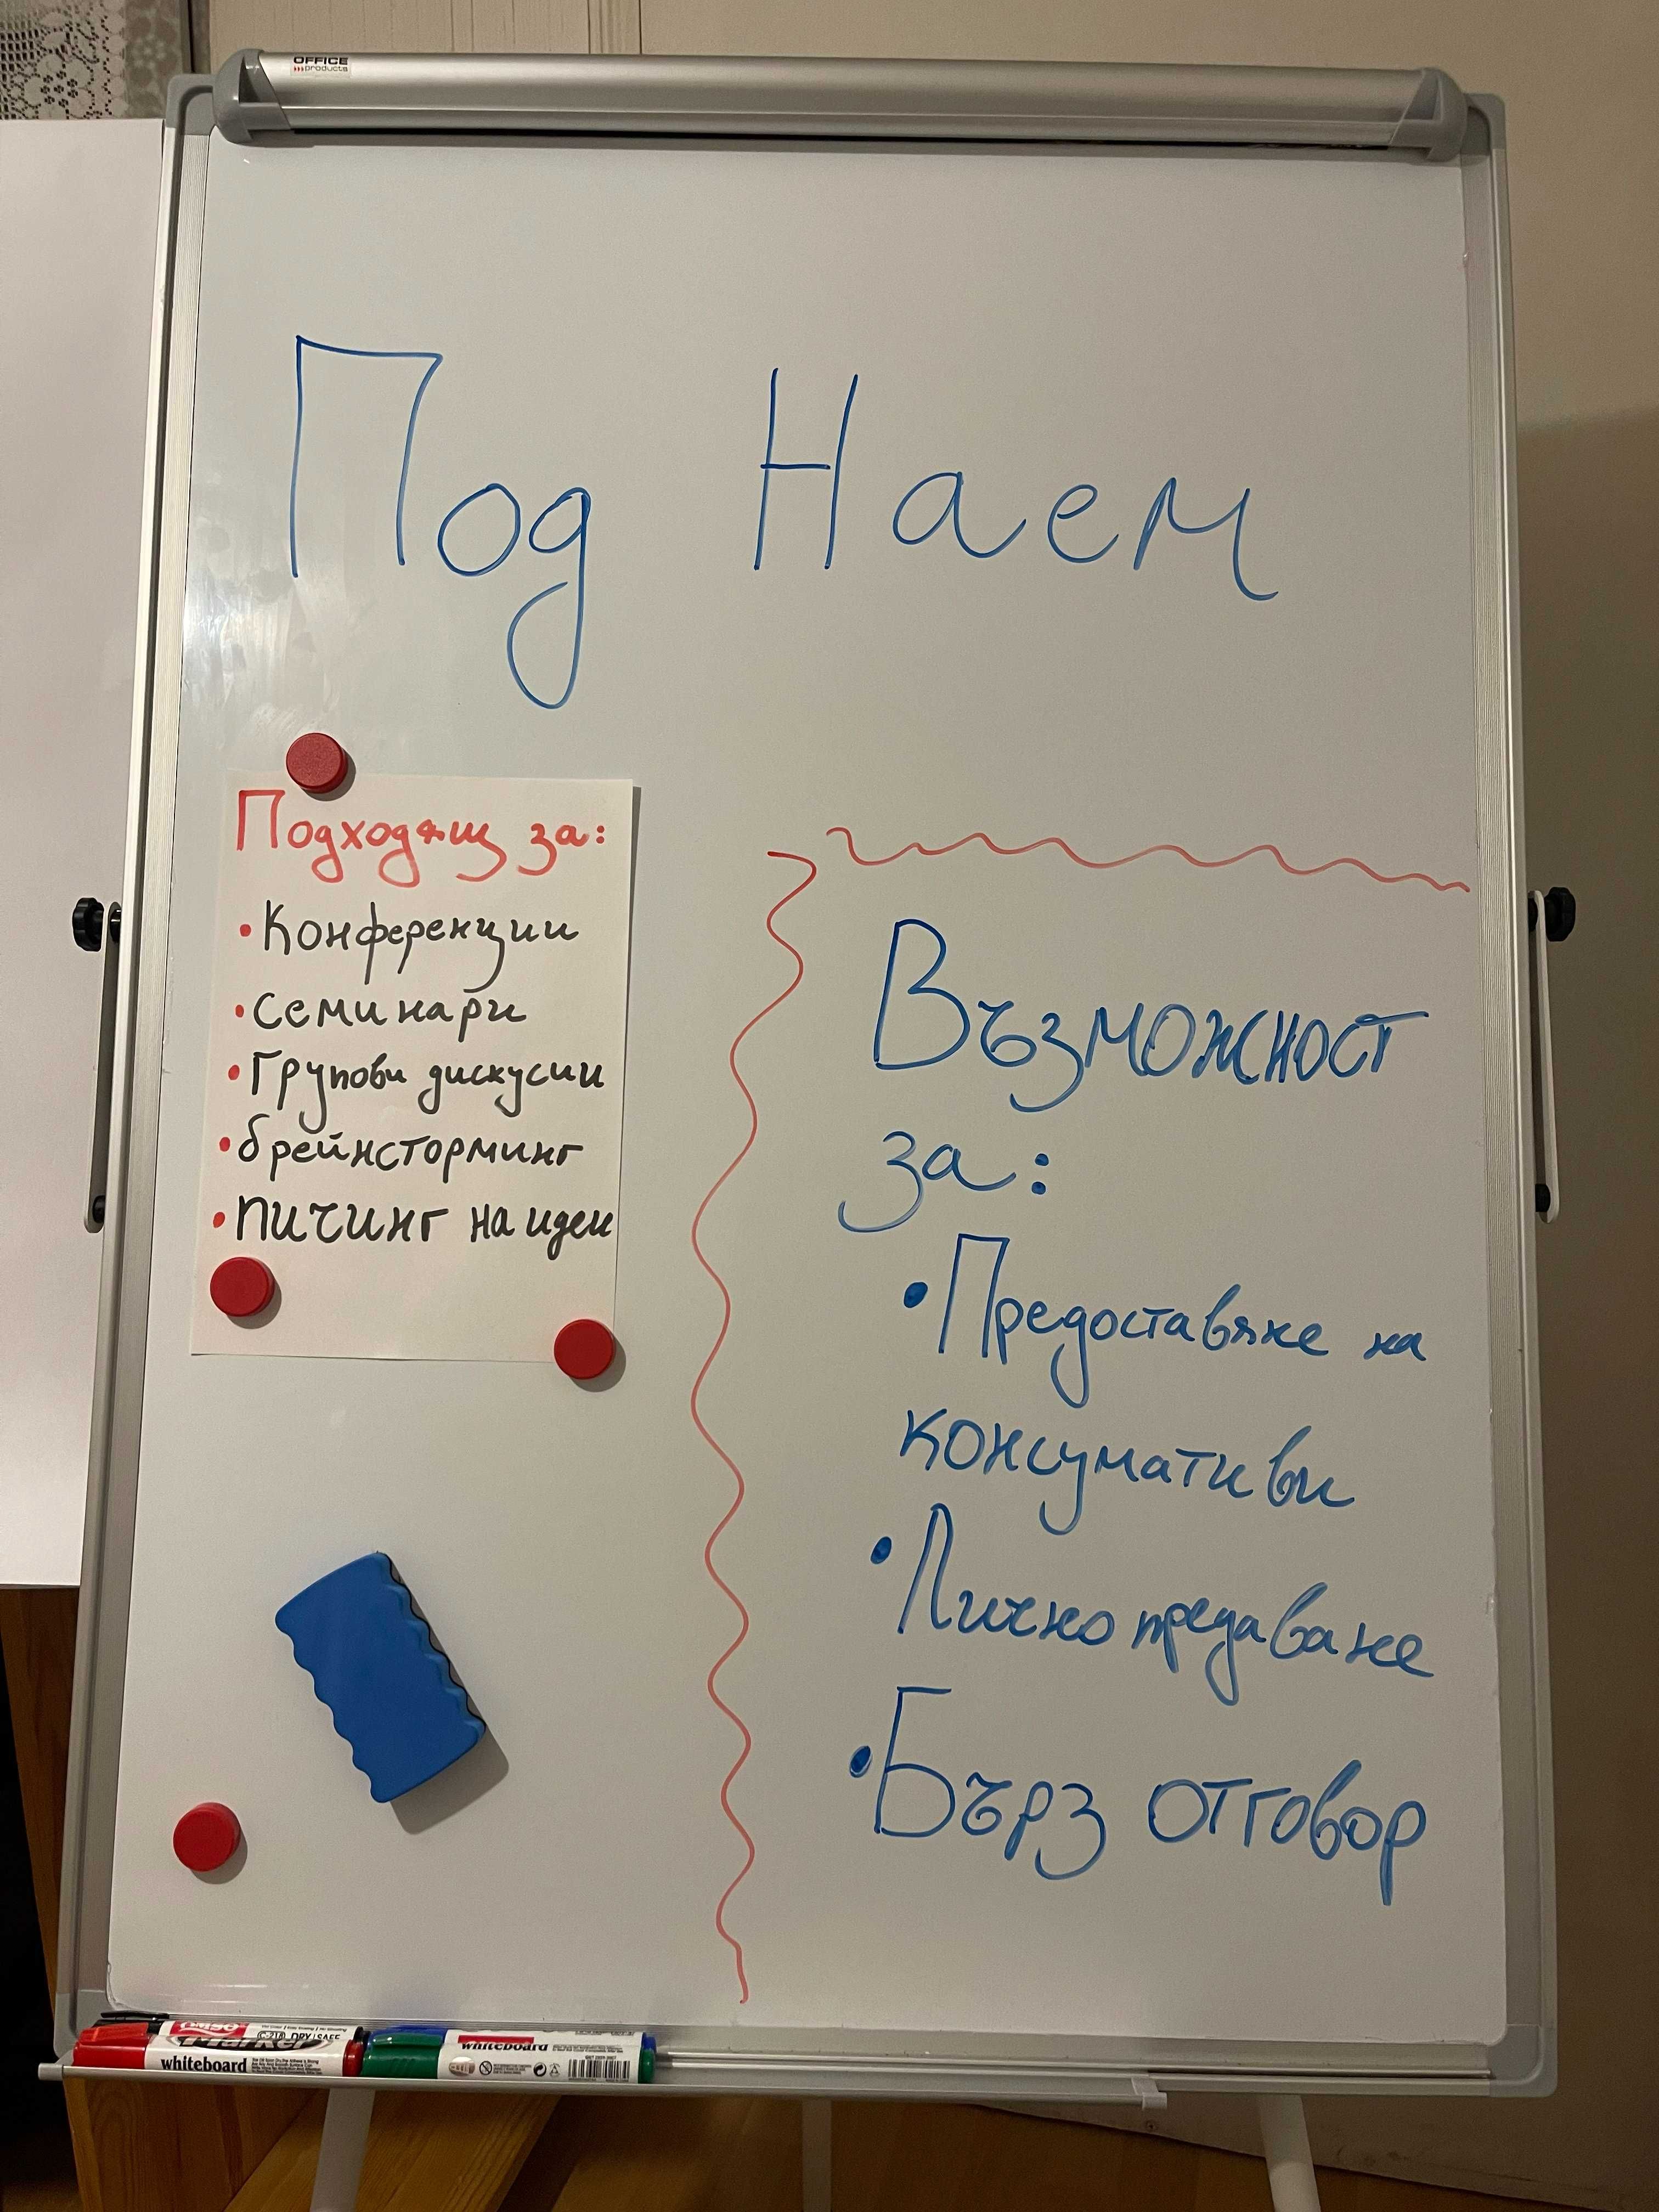 OFFICE
products
Под Наем
Подходящ за:
• Конференции
• Семинари
• Групови дискусии
• брейнсторминг
• пичинг на идеи
Възможност
за:
• Предоставяне на
консумативи
• Лично предаване
• Бърз отговор
Marker
whiteboard
whiteboard